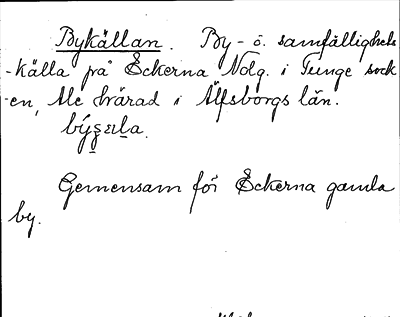 Bykällan. By- ö. samfällighets
-källa på Eckerna Nolg. i Tunge sock
-en, Ale härad i Älfsborgs län.
Gemensam för Eckerna gamla
by.